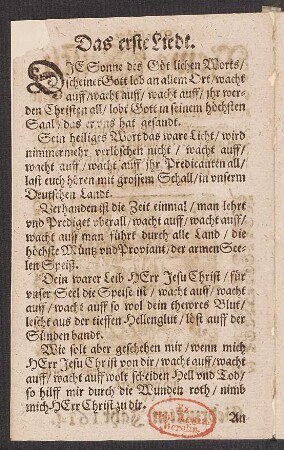 Das erste Liedt.
DJE Sonne des Göt lichen Worts/
scheinet Gott lob an allem Ort/ wacht
auff/ wacht auff/ wacht auff/ ihr wer-
den Christen all/ lobt Gott in seinem höchsten
Saal/ das er vns hat gesandt.
Sein heiliges Wort das ware Licht/ wird
nimmermehr verlöschen nicht/ wacht auff/
wacht auff/ wacht auff ihr Predicanten all/
last euch hören mit grossem Schall/ in vnserm
Deutschen Landt.
Verhanden ist die Zeit einmal/ man lehrt
vnd Prediget vberall/ wacht auff/ wacht auff/
wacht auff man führt durch alle Land/ die
höchste Müntz vnd Proviant/ der armen See-
len Speiß.
Dein warer Leib HErr Jesu Christ/ für
vnser Seel die Speise ist/ wacht auff/ wacht
auff/ wacht auff so wol dein thewres Blut/
lescht aus der tieffen Hellenglut/ löst auff der
Sünden bandt.
Wie solt aber geschehen mir/ wenn mich
HErr Jesu Christ von dir/ wacht auff/ wacht
auff/ wacht auff wolt scheiden Hell vnd Tod/
so hilff mir durch die Wunden roth/ nimb
mich HErr Christ zu dir.
An
Berolin.